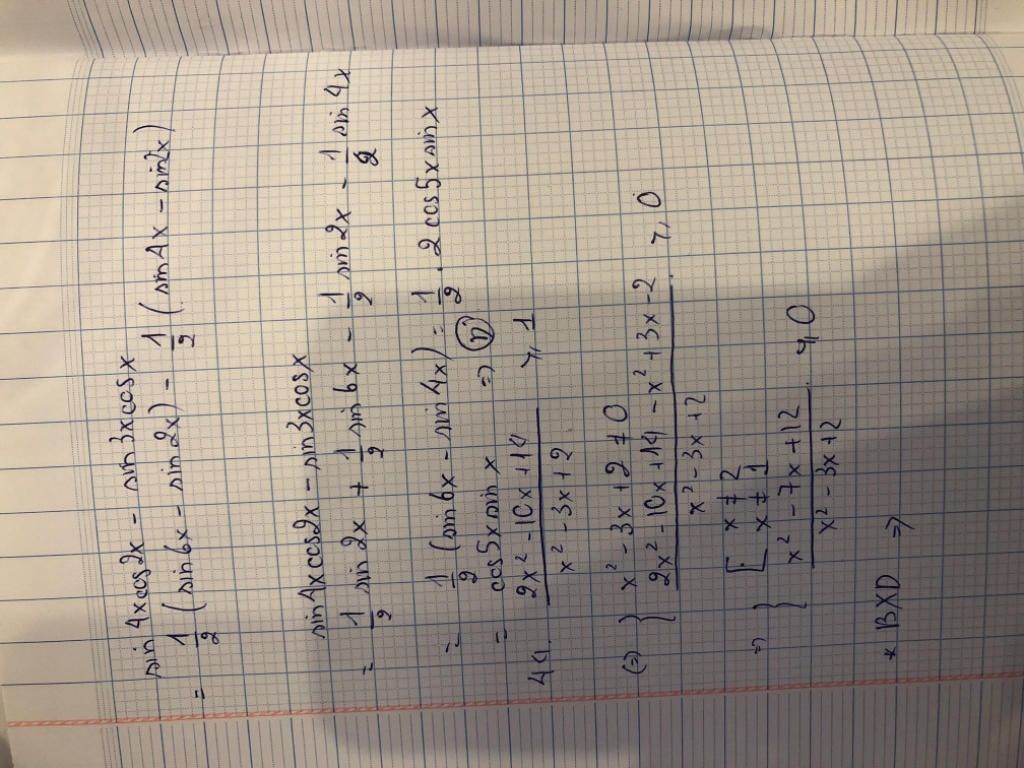 sin4xcos2x - sin3xcosx
= 1/2 (sin6x - sin2x) - 1/2 (sin4x - sin2x)
sin4xcos2x - sin3xcosx
= 1/2 sin2x + 1/2 sin6x - 1/2 sin2x - 1/2 sin4x
= 1/2 (sin6x - sin4x) = 1/2 . 2cos5xsinx
= cos5xsinx => D
44. (2x² - 10x + 14)/(x² - 3x + 2) ≥ 1
(=) { x² - 3x + 2 ≠ 0
(2x² - 10x + 14 - x² + 3x - 2)/(x² - 3x + 2) ≥ 0
=> { [ x ≠ 2
x ≠ 1
(x² - 7x + 12)/(x² - 3x + 2) ≥ 0
* BXD =>